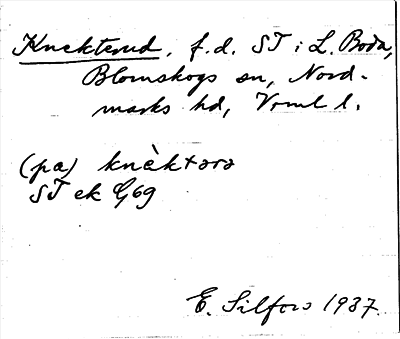 Knekterud, f.d. ST i L. Boda,
Blomskogs sn, Nord-
marks hd, Vrml l.
(på) knèktərə
ST ek G69
E. Silfors 1937.